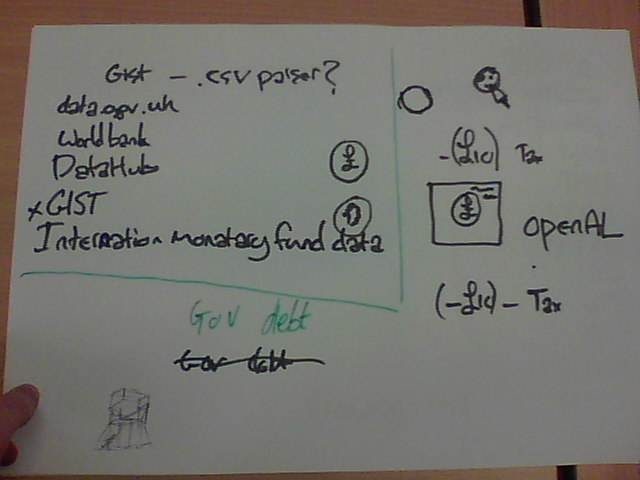 Gist - .csv parser?
data.gov.uk
World bank
DataHub
£
x GIST
Internation monatary fund data
Gov debt
Gov debt
-(£10) Tax
£
openAL
(-£10) - Tax